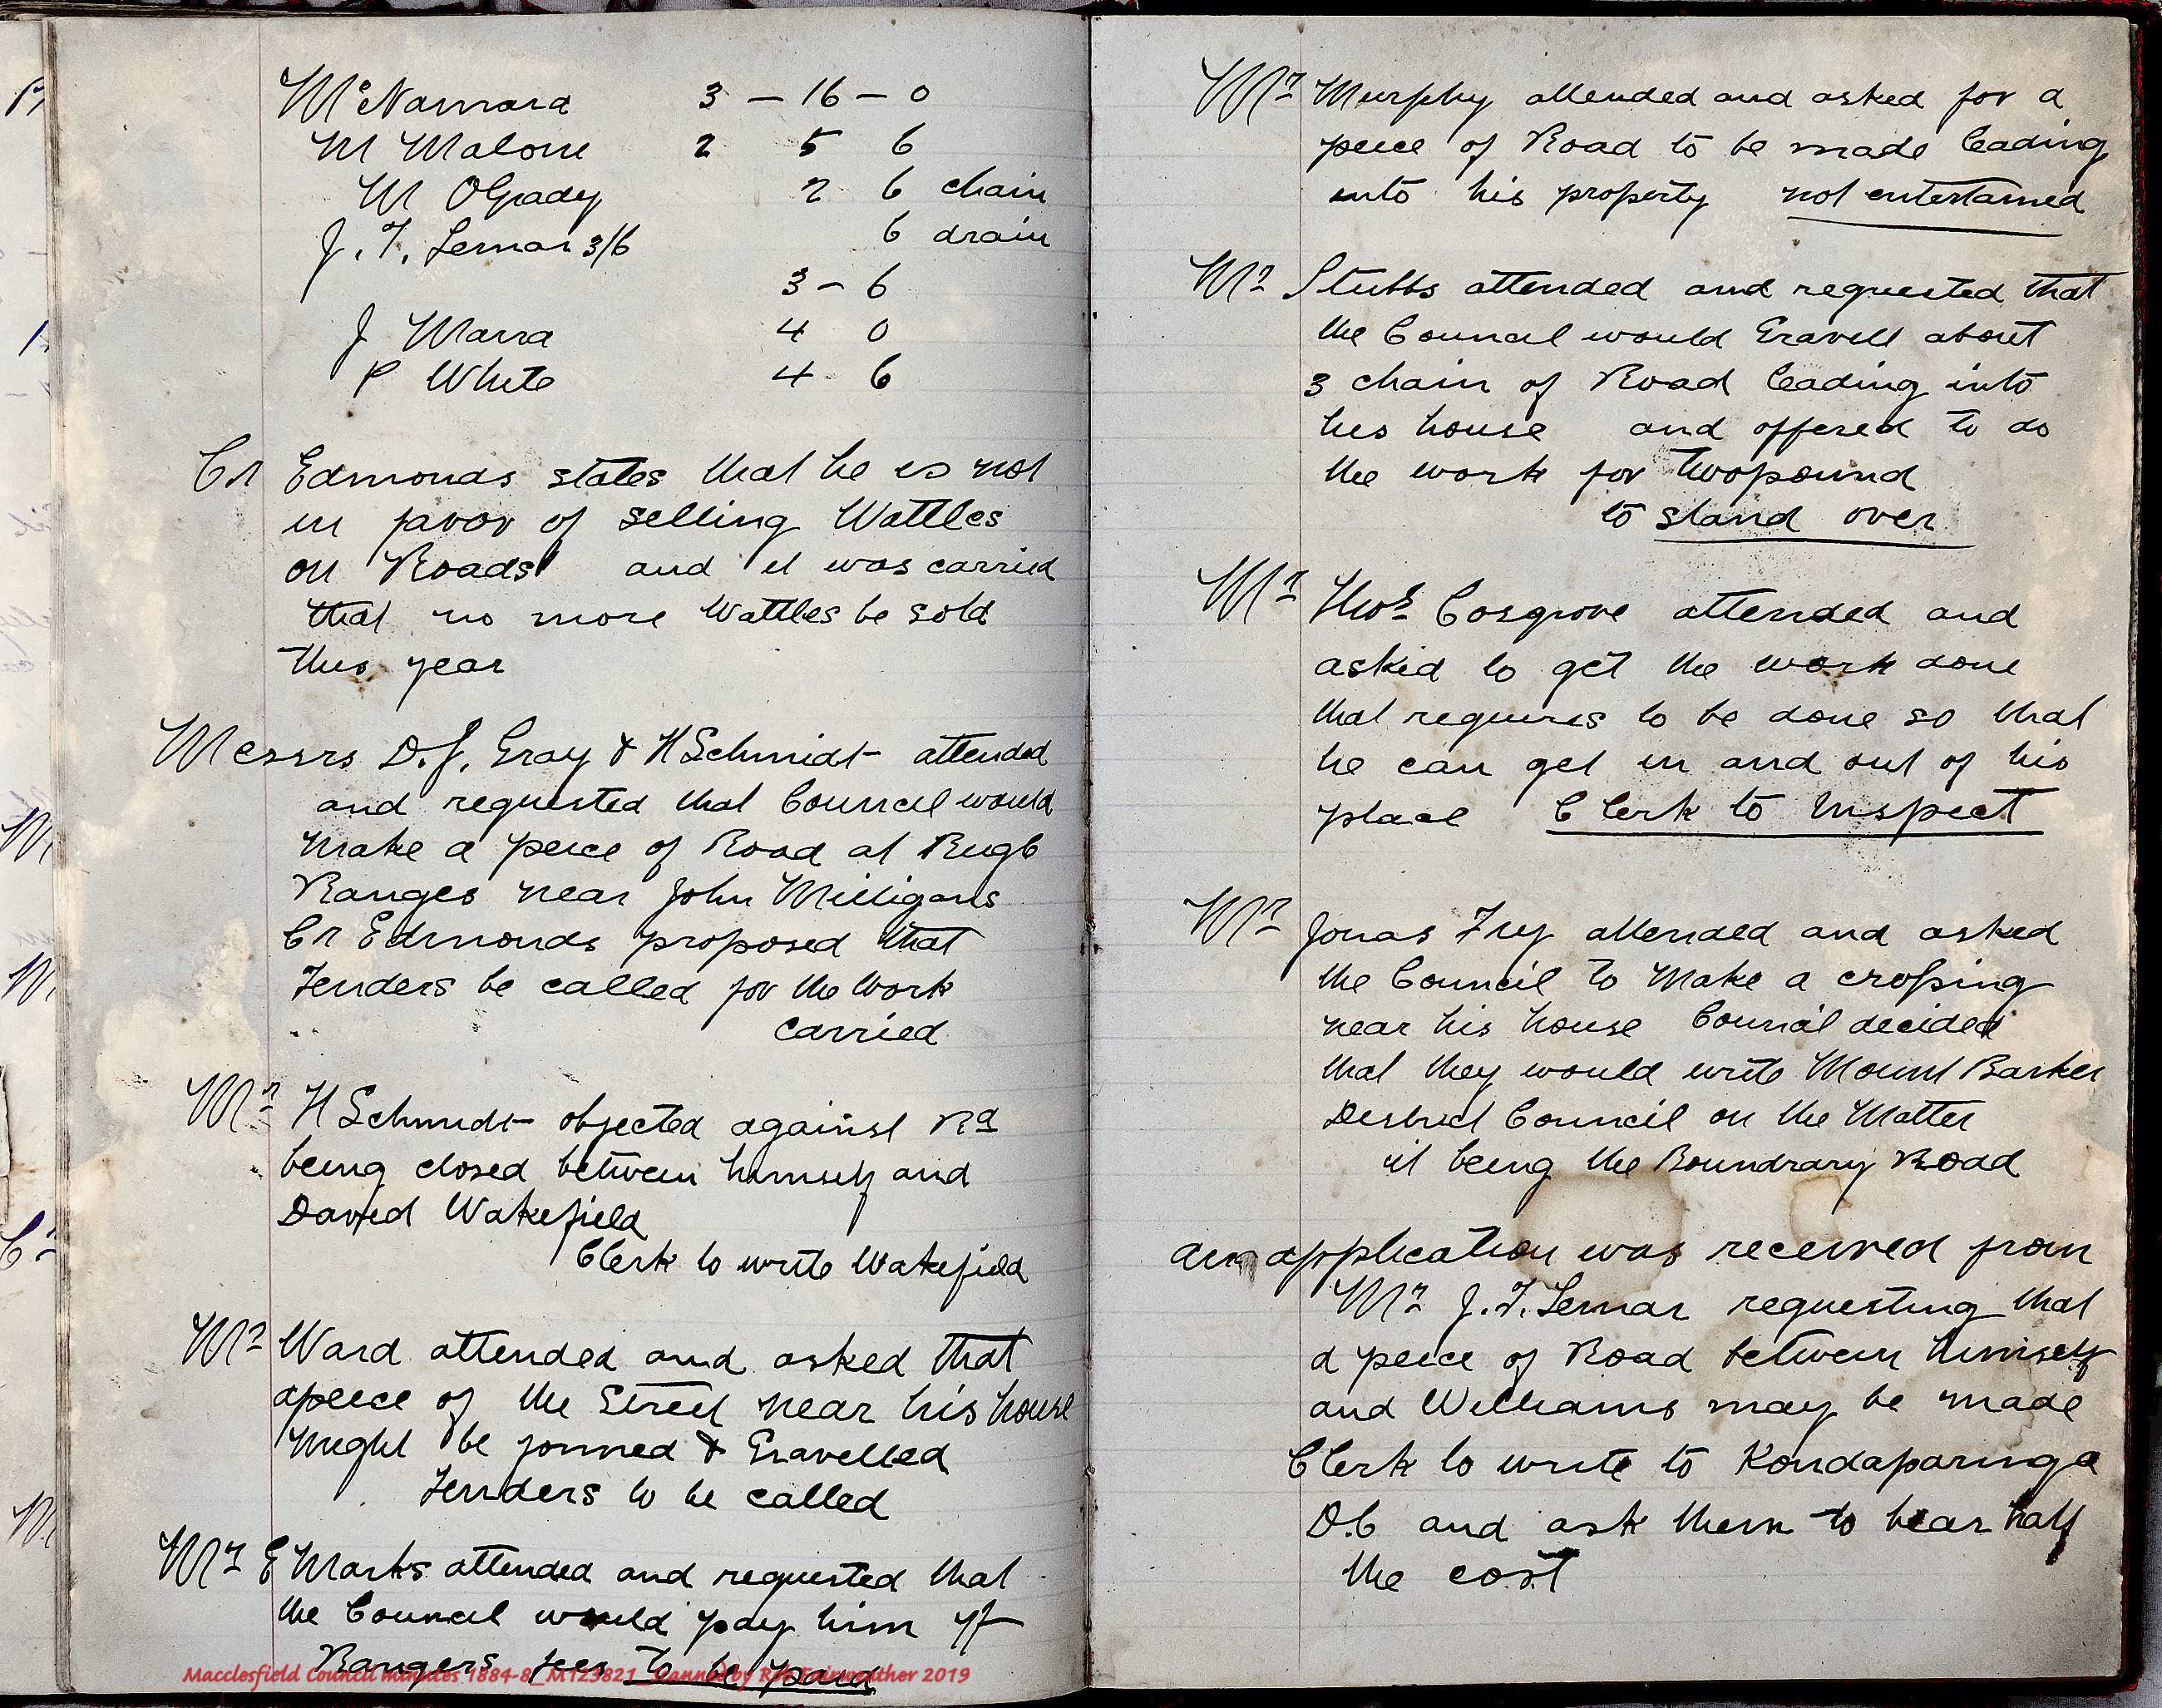 McNamara 3 – 16 – 0
M Malone 2 5 6
M OGrady 2 6 chain
J. F. Lemar 3/6 6 drain
3 – 6
J Marra 4 0
P White 4 6
Cr Edmonds states that he is not
in favor of selling Wattles
on Roads and it was carried
that no more Wattles be sold
this year
Messrs D.J. Gray & H Schmidt attended
and requested that Council would
make a peice of Road at Bugle
Ranges near John Milligans
Cr Edmonds proposed that
Tenders be called for the Work
carried
Mr H Schmidt objected against Rd
being closed between himself and
David Wakefield
Clerk to write Wakefield
Mr Ward attended and asked that
apeece of the Street near his house
might be formed & Gravelled
Tenders to be called
Mr E Marks attended and requested that
the Council would pay him
Rangers fees to be paid
Macclesfield Council minutes 1884-8_M123821_ Scanned by Rob Fairweather 2019
Mr Murphy attended and asked for a
peece of Road to be made leading
into his property not entertained
Mr Stubbs attended and requested that
the Council would Gravell about
3 chain of Road leading into
his house and offered to do
the work for Twopound
to stand over
Mr Thos Cosgrove attended and
asked to get the work done
that requires to be done so that
he can get in and out of his
place Clerk to Inspect
Mr Jonas Fry attended and asked
the Council to Make a crossing
near his house Council decided
that they would write Mount Barker
District Council on the Matter
it being the Boundrary Road
an application was received from
Mr J. F. Lemar requesting that
a peece of Road between himself
and Williams may be made
Clerk to write to Kondaparinga
D.C and ask them to bear half
the cost